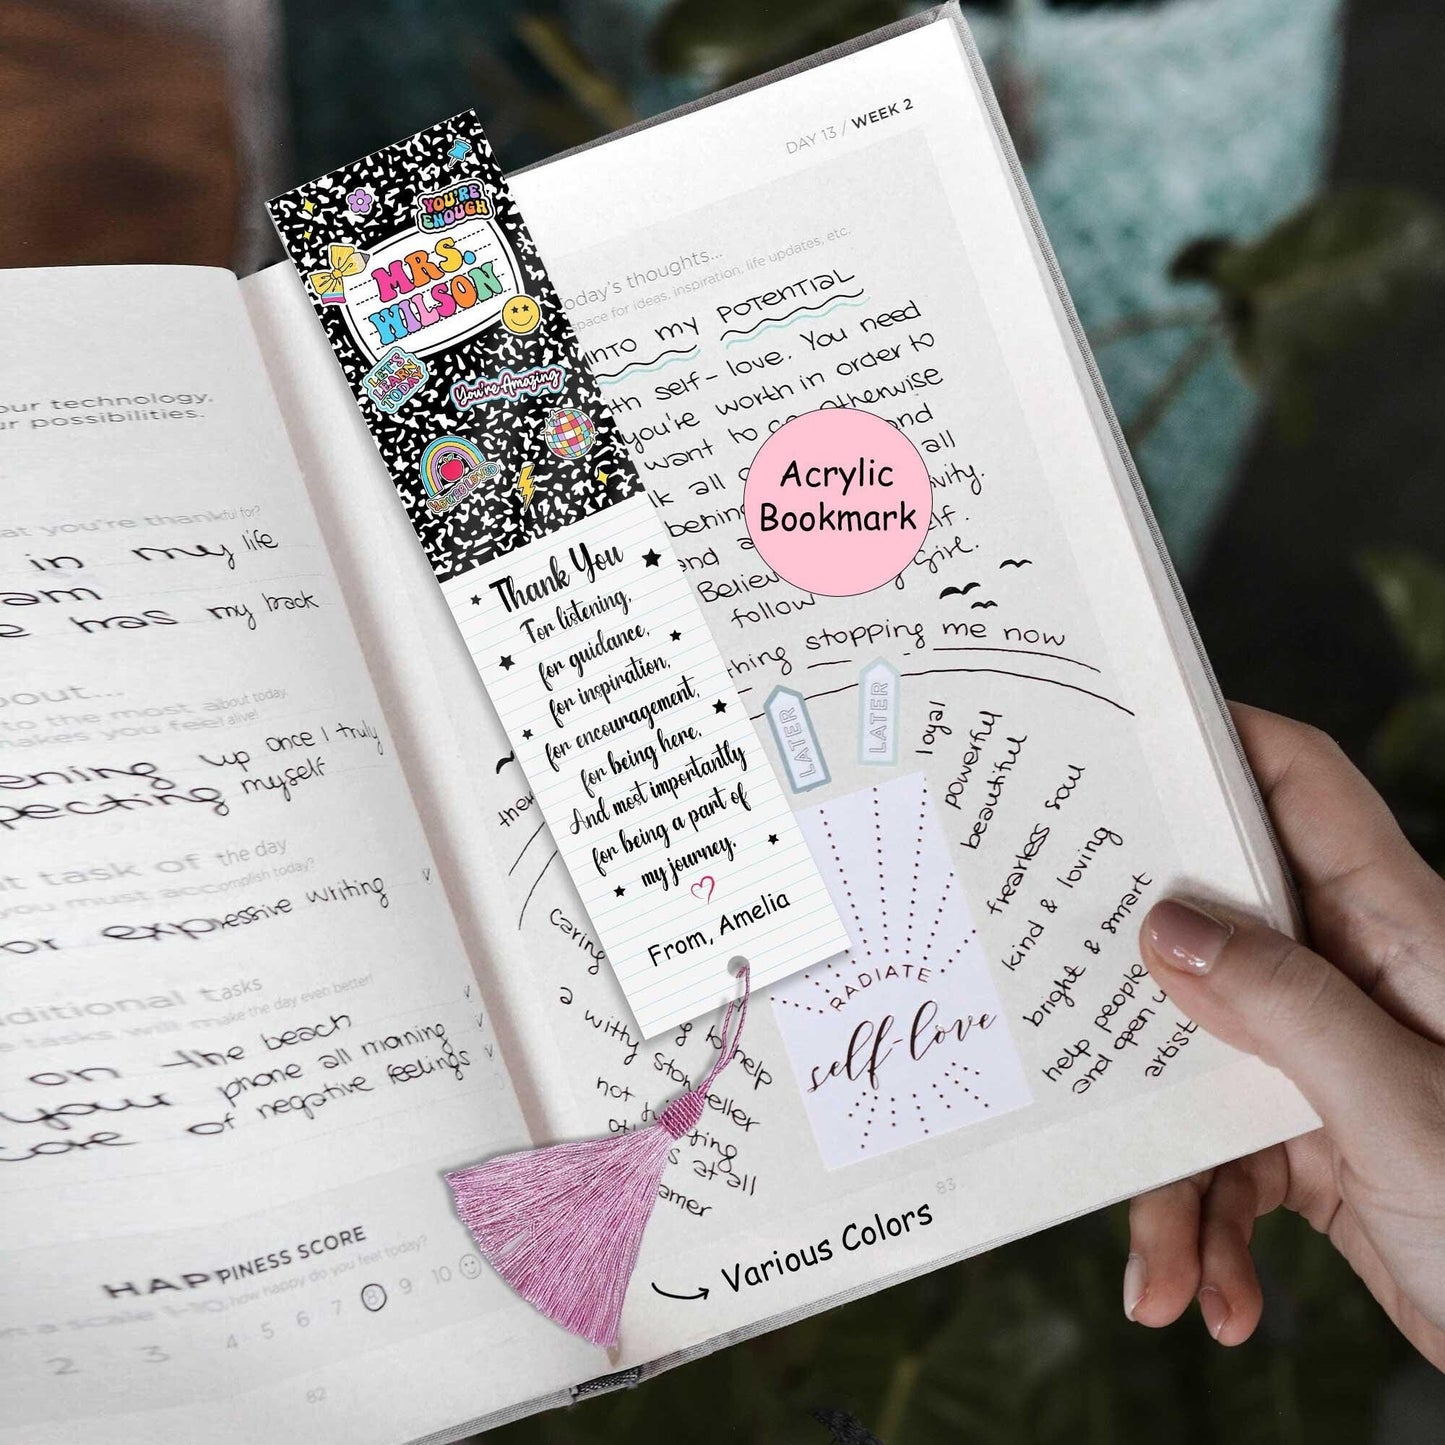 our technology,
ur possibilities.
at you're thankful for?
in my life
am
e has my back
bout...
about today,
feel alive!
ening up once I truly
pecting myself
t task of the day
you must accomplish today?
or expressive writing
ditional tasks
e tasks will make the day even better!
on the beach
your phone all morning
care of negative feelings
HAPPINESS SCORE
n a scale 1-10, how happy do you feel today?
2 3 4 5 6 7 8 9 10
82
YOU'RE
ENOUGH
MRS.
WILSON
LET'S
LEARN
TODAY
You're Amazing
YOU ARE LOVED
Thank You
For listening,
for guidance,
for inspiration,
for encouragement,
for being here,
And most importantly
for being a part of
my journey.
From, Amelia
DAY 13 / WEEK 2
Today's thoughts...
space for ideas, inspiration, life updates, etc.
INTO my POTENTIAL
th self-love. You need
you're worth in order to
want to go otherwise
lk all all
behind
and a
Believ girl.
follow
thing stopping me now
Acrylic
Bookmark
LATER
LATER
loyal
powerful
beautiful
frearless soul
kind & loving
bright & smart
help people
and open u
artist
caring
a witty storyteller
to help
not
at all
RADIATE
self-love
83
Various Colors